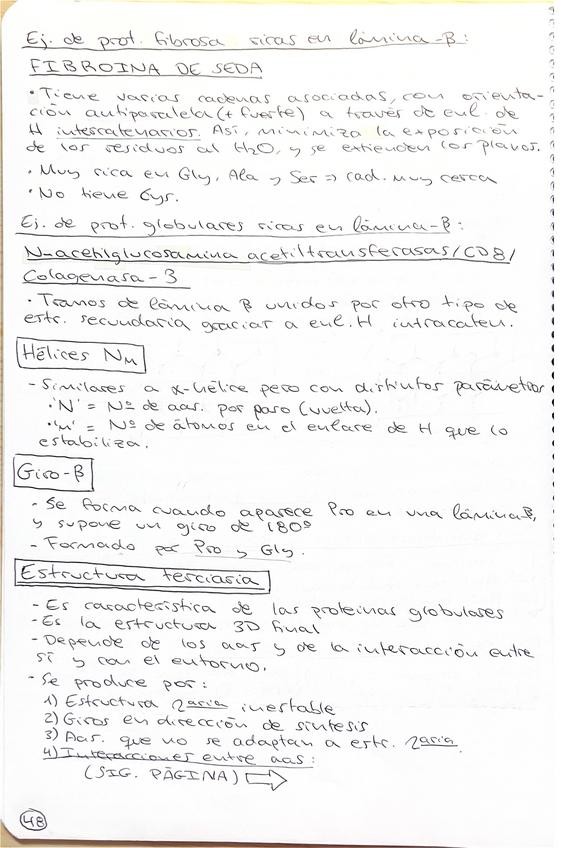 Ej. de prot. fibrosa ricas en lámina-β:
FIBROINA DE SEDA
• Tiene varias cadenas asociadas, con orienta-
ción antiparalela (+ fuerte) a través de enl. de
H intercatenarios. Así, minimiza la exposición
de los residuos al H2O, y se extienden los planos.
• Muy rica en Gly, Ala y Ser => cad. muy cerca
• No tiene Cys.
Ej. de prot. globulares ricas en lámina-β:
N-acetilglucosamina acetiltransferasas/CD8/
Colagenasa-3
• Tramos de lámina β unidos por otro tipo de
estr. secundaria gracias a enl. H intracaten.
Hélices NM
- Similares a α-hélice pero con distintos parámetros
• 'N' = Nº de aas. por paso (vuelta).
• 'M' = Nº de átomos en el enlace de H que lo
estabiliza.
Giro-β
- Se forma cuando aparece Pro en una lámina β,
y supone un giro de 180º
- Formado por Pro y Gly.
Estructura terciaria
- Es característica de las proteínas globulares
- Es la estructura 3D final
- Depende de los aas y de la interacción entre
sí y con el entorno.
- Se produce por:
1) Estructura 2aria inestable
2) Giros en dirección de síntesis
3) Aas. que no se adaptan a estr. 2aria.
4) Interacciones entre aas:
(SIG. PÁGINA) ⇨
48